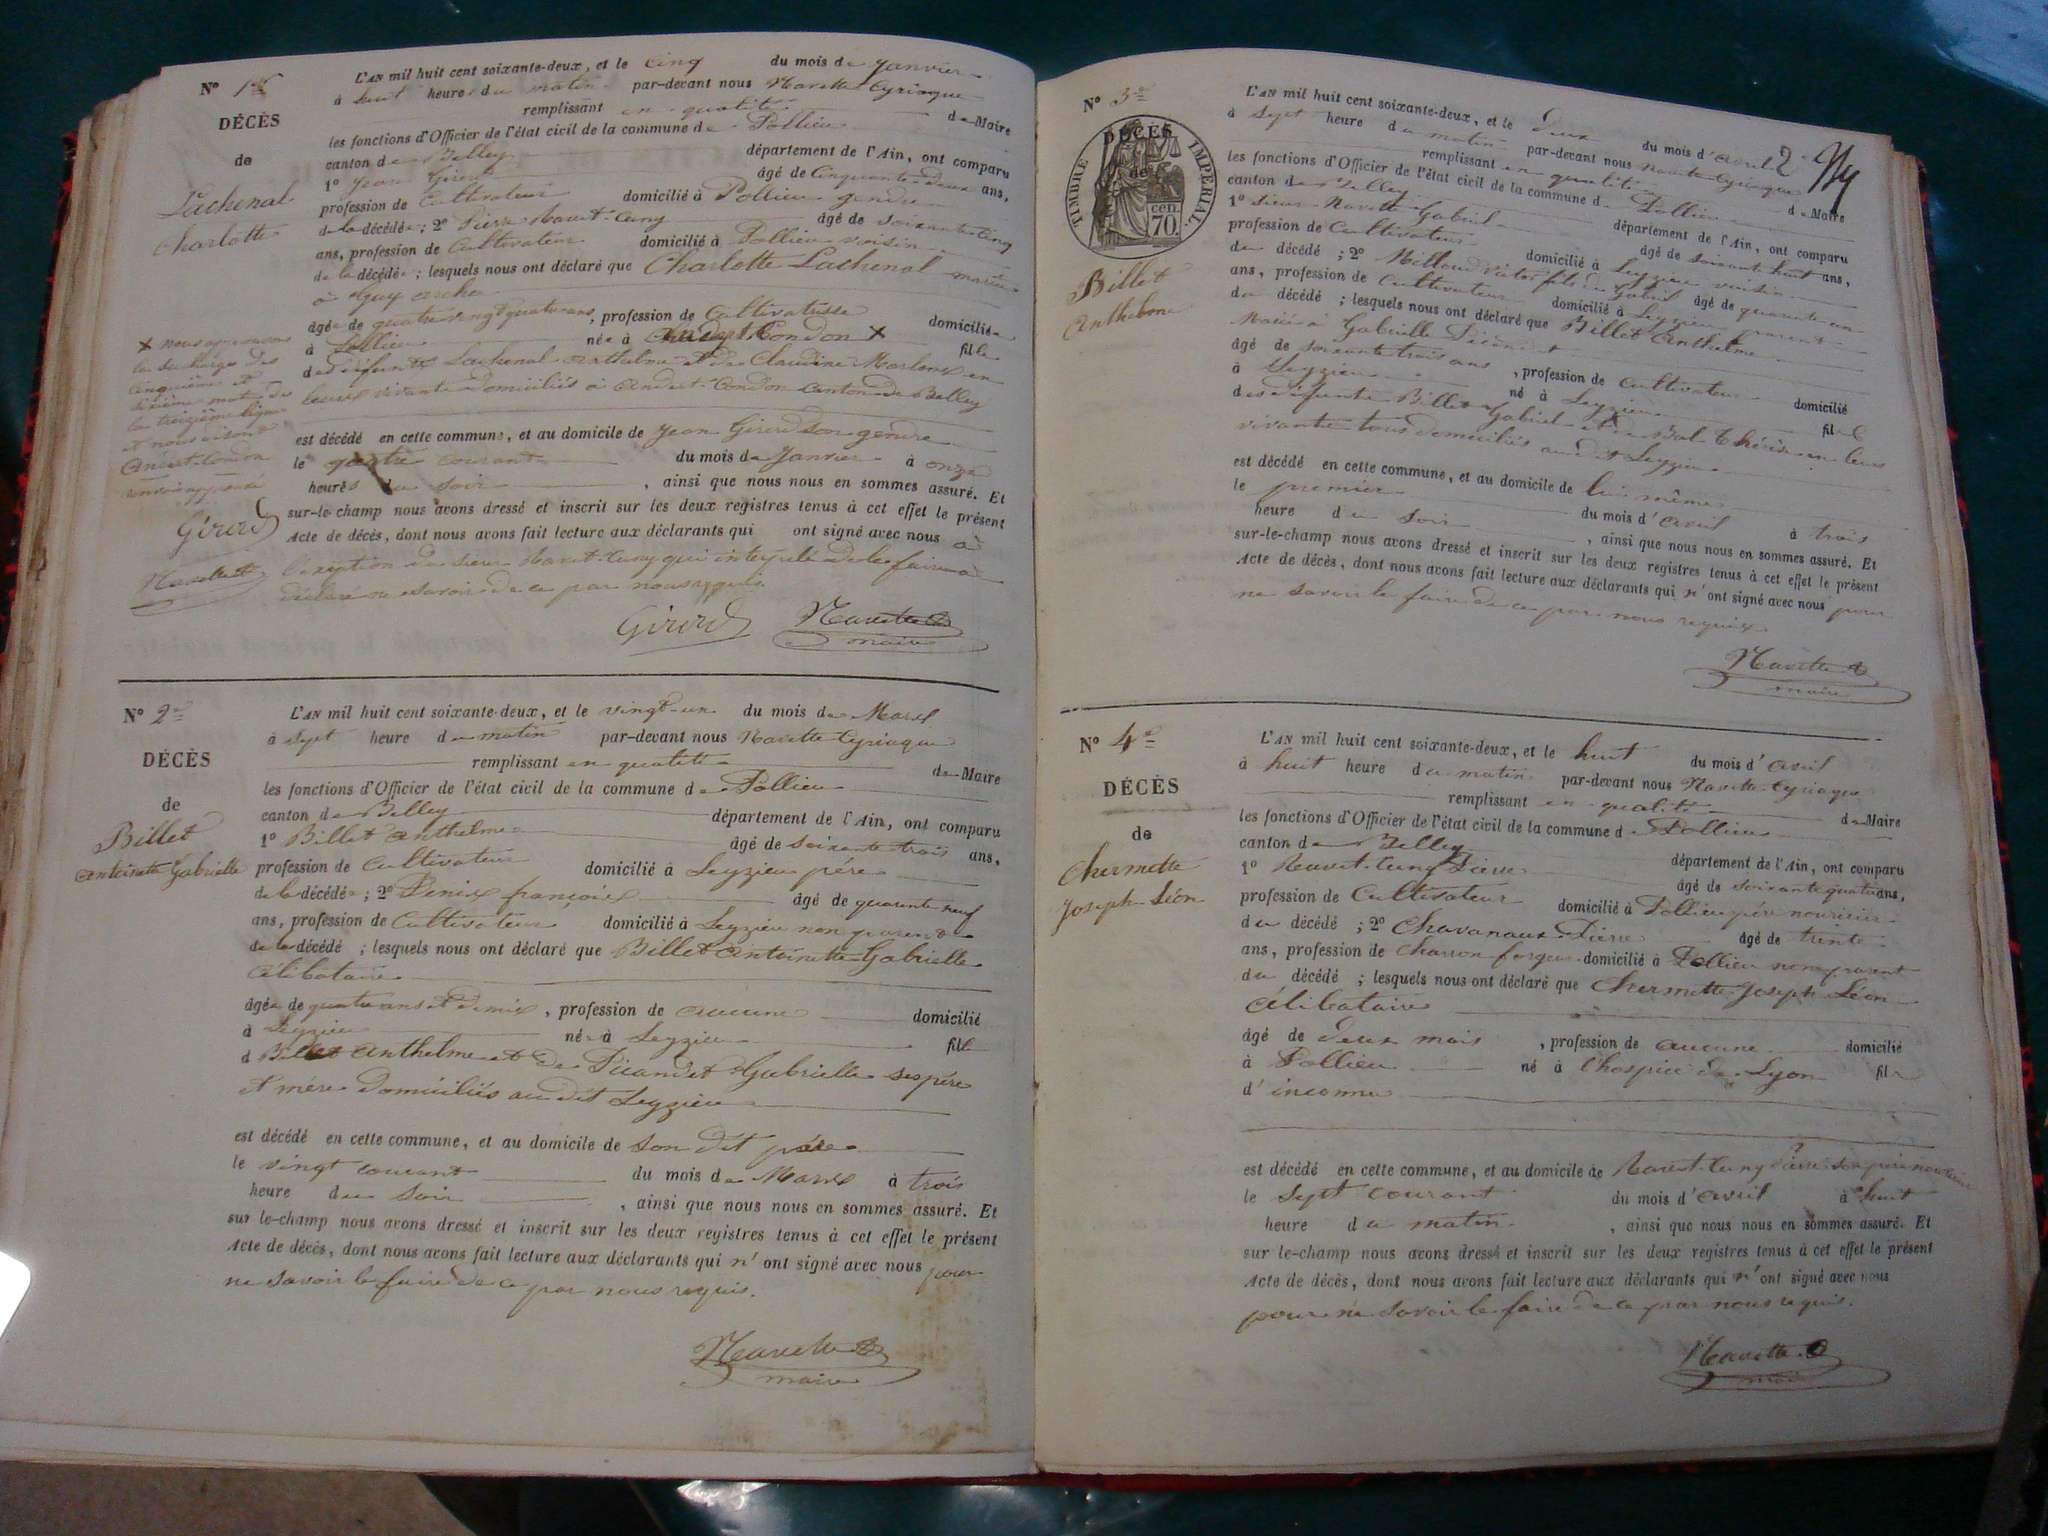 N° 1er
DÉCÈS
de
Lachenal
Charlotte
L'AN mil huit cent soixante-deux, et le cinq du mois de Janvier
à huit heure du matin par-devant nous Navette Cyriaque
remplissant en qualité de Maire
les fonctions d'Officier de l'état civil de la commune de Pollieu
canton de Belley département de l'Ain, ont comparu
1° Jean Girerd âgé de Cinquante-deux ans,
profession de Cultivateur domicilié à Pollieu gendre
de la décédée ; 2° Pierre Navet-Cuny âgé de soixante-cinq
ans, profession de Cultivateur domicilié à Pollieu voisin
de la décédée ; lesquels nous ont déclaré que Charlotte Lachenal mariée
à Guy
âgée de quatre-vingt-quatre ans, profession de Cultivatrice domiciliée
à Pollieu née à Andert-Condon X fille
de défunts Lachenal Anthelme et de Claudine en
leurs vivants domiciliés à Andert-Condon canton de Belley
est décédé en cette commune, et au domicile de Jean Girerd son gendre
le quatre courant du mois de Janvier à onze
heures du soir , ainsi que nous nous en sommes assuré. Et
sur-le-champ nous avons dressé et inscrit sur les deux registres tenus à cet effet le présent
Acte de décès, dont nous avons fait lecture aux déclarants qui ont signé avec nous à
l'exception du sieur Navet-Cuny qui interpelé de le faire a
déclaré ne savoir de ce par nous requis
X nous approuvons
la surcharge des
cinquième et
sixième mots de
la treizième ligne
et nous disons
Andert-Condon
Girerd
Navette
Girerd Navette
maire
N° 2e
DÉCÈS
de
Billet
Antoinette Gabrielle
L'AN mil huit cent soixante-deux, et le vingt-un du mois de Mars
à sept heure du matin par-devant nous Navette Cyriaque
remplissant en qualité de Maire
les fonctions d'Officier de l'état civil de la commune de Pollieu
canton de Belley département de l'Ain, ont comparu
1° Billet Anthelme âgé de soixante-trois ans,
profession de Cultivateur domicilié à Leyzieu père
de la décédée ; 2° françois âgé de quarante neuf
ans, profession de Cultivateur domicilié à Leyzieu non parent
de la décédé ; lesquels nous ont déclaré que Billet Antoinette-Gabrielle
célibataire
âgée de quatre ans et demi, profession de aucune domicilié
à Leyzieu née à Leyzieu fille
d Billet Anthelme et de Gabrielle ses père
et mère domiciliés au dit Leyzieu
est décédé en cette commune, et au domicile de son dit père
le vingt courant du mois de Mars à trois
heure du soir , ainsi que nous nous en sommes assuré. Et
sur le-champ nous avons dressé et inscrit sur les deux registres tenus à cet effet le présent
Acte de décès, dont nous avons fait lecture aux déclarants qui n'ont signé avec nous pour
ne savoir le faire de ce par nous requis.
Navette
maire
N° 3e
DÉCÈS
de
TIMBRE IMPÉRIAL
70. cen.
Billet
Anthelme
2e
L'AN mil huit cent soixante-deux, et le deux du mois d'avril
à sept heure du matin par-devant nous Navette Cyriaque
remplissant en qualité de Maire
les fonctions d'Officier de l'état civil de la commune de Pollieu
canton de Belley département de l'Ain, ont comparu
1° sieur Navette Gabriel âgé de soixante huit ans,
profession de Cultivateur domicilié à Leyzieu voisin
du décédé ; 2° Milloud Victor fils de Gabriel âgé de quarante un
ans, profession de Cultivateur domicilié à Leyzieu parent
du décédé ; lesquels nous ont déclaré que Billet Anthelme
Marié à Gabrielle
âgé de soixante trois ans , profession de Cultivateur domicilié
à Leyzieu né à Leyzieu fil
des défunts Billet Gabriel et de Bal Thérèse en leurs
vivants tous domiciliés au dit Leyzieu
est décédé en cette commune, et au domicile de lui même
le premier du mois d'avril à trois
heure du soir , ainsi que nous nous en sommes assuré. Et
sur-le-champ nous avons dressé et inscrit sur les deux registres tenus à cet effet le présent
Acte de décès, dont nous avons fait lecture aux déclarants qui n'ont signé avec nous pour
ne savoir le faire de ce par nous requis
Navette
maire
N° 4e
DÉCÈS
de
Chermette
Joseph-Léon
L'AN mil huit cent soixante-deux, et le huit du mois d'avril
à huit heure du matin par-devant nous Navette Cyriaque
remplissant en qualité de Maire
les fonctions d'Officier de l'état civil de la commune de Pollieu
canton de Belley département de l'Ain, ont comparu
1° Navet-Cuny Pierre âgé de soixante quatre ans,
profession de Cultivateur domicilié à Pollieu père nourricier
du décédé ; 2° Chavanaux Pierre âgé de trente
ans, profession de Charron forgeur domicilié à Pollieu non parent
du décédé ; lesquels nous ont déclaré que Chermette Joseph Léon
célibataire
âgé de deux mois , profession de aucune domicilié
à Pollieu né à l'hospice de Lyon fil
d'inconnu
est décédé en cette commune, et au domicile de Navet-Cuny Pierre son père nourricier
le sept courant du mois d'avril à huit
heure du matin , ainsi que nous nous en sommes assuré. Et
sur le-champ nous avons dressé et inscrit sur les deux registres tenus à cet effet le présent
Acte de décès, dont nous avons fait lecture aux déclarants qui n'ont signé avec nous
pour ne savoir le faire de ce par nous requis.
Navette
maire